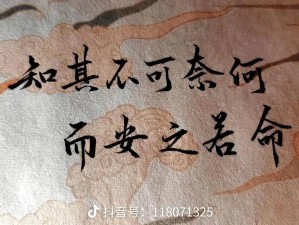 知其不可奈何
而安之若命
抖音号：118071325